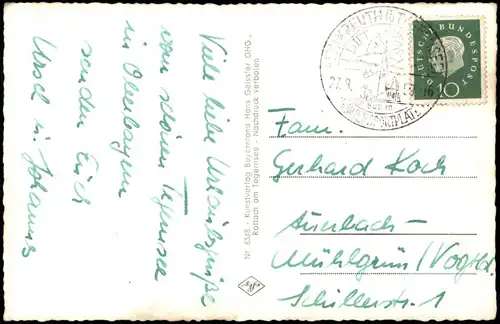 Viele liebe Urlaubsgrüße
vom schönen Tegernsee
in Oberbayern
senden Euch
Ursel u. Johannes
Nr. 6368 - Kunstverlag Bayernland Hans Geissler OHG.,
Rottach am Tegernsee - Nachdruck verboten
DEUTSCHE BUNDESPOST
10
Fam.
Gerhard Koch
Auerbach-
Mühlgrün/Vogtld.
Schillerstr. 1